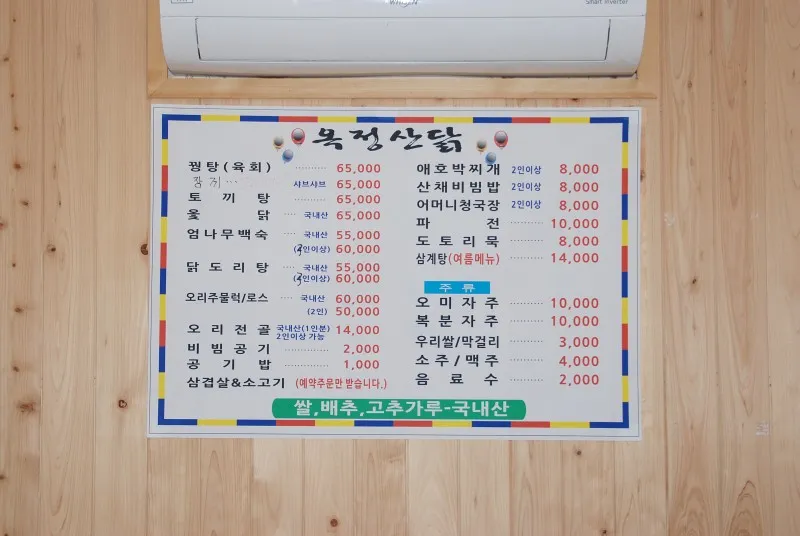 Smart Inverter
옥정산닭
꿩탕(육회) ·········· 65,000
장끼··· 샤브샤브 65,000
토끼탕 ·········· 65,000
옻닭 ···· 국내산 65,000
엄나무백숙 ···· 국내산 55,000
(인이상) 60,000
닭도리탕 ···· 국내산 55,000
(인이상) 60,000
오리주물럭/로스 ···· 국내산 60,000
(2인) 50,000
오리전골 국내산(1인분) 14,000
2인이상 가능
비빔공기 ·········· 2,000
공기밥 ·········· 1,000
삼겹살&소고기 (예약주문만 받습니다.)
애호박찌개 2인이상 8,000
산채비빔밥 2인이상 8,000
어머니청국장 2인이상 8,000
파전 ·········· 10,000
도토리묵 ·········· 8,000
삼계탕(여름메뉴) ······ 14,000
주류
오미자주 ·········· 10,000
복분자주 ·········· 10,000
우리쌀/막걸리 ·········· 3,000
소주/맥주 ·········· 4,000
음료수 ·········· 2,000
쌀,배추,고추가루-국내산